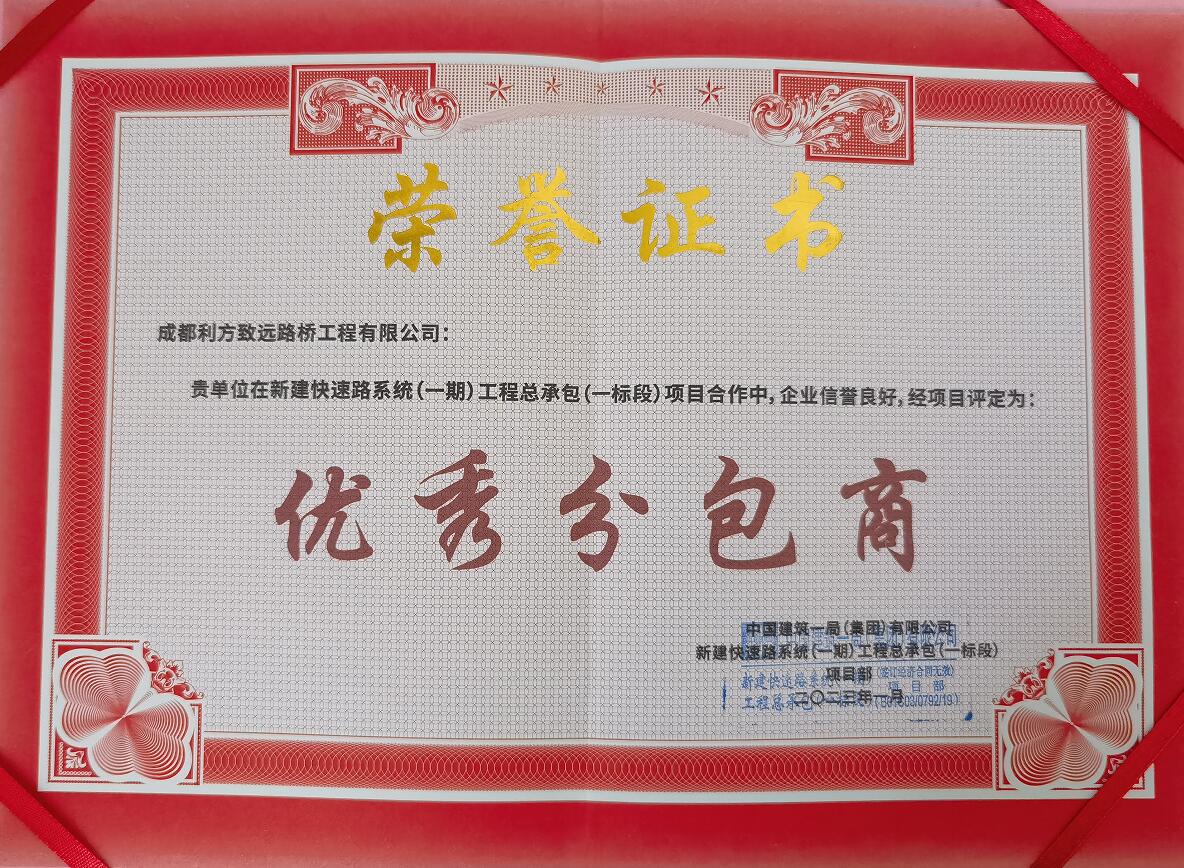 荣誉证书
成都利方致远路桥工程有限公司：
贵单位在新建快速路系统(一期)工程总承包(一标段)项目合作中,企业信誉良好,经项目评定为：
优秀分包商
中国建筑一局(集团)有限公司
新建快速路系统(一期)工程总承包(一标段)
项目部
二〇二三年一月
(签订经济合同无效)
新建快速路系统
项目部
工程总承包